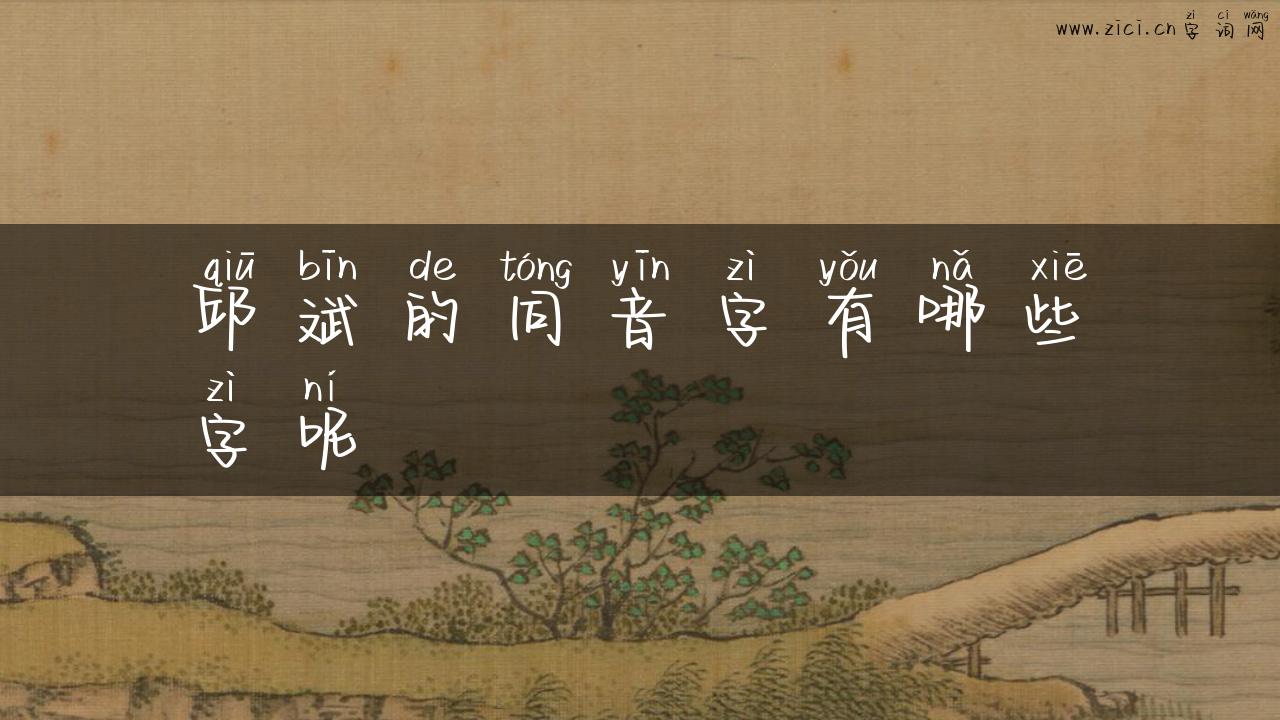 zì cí wǎng
www.zici.cn 字 词 网
qiū bīn de tóng yīn zì yǒu nǎ xiē
邱 斌 的 同 音 字 有 哪 些
zì ní
字 呢